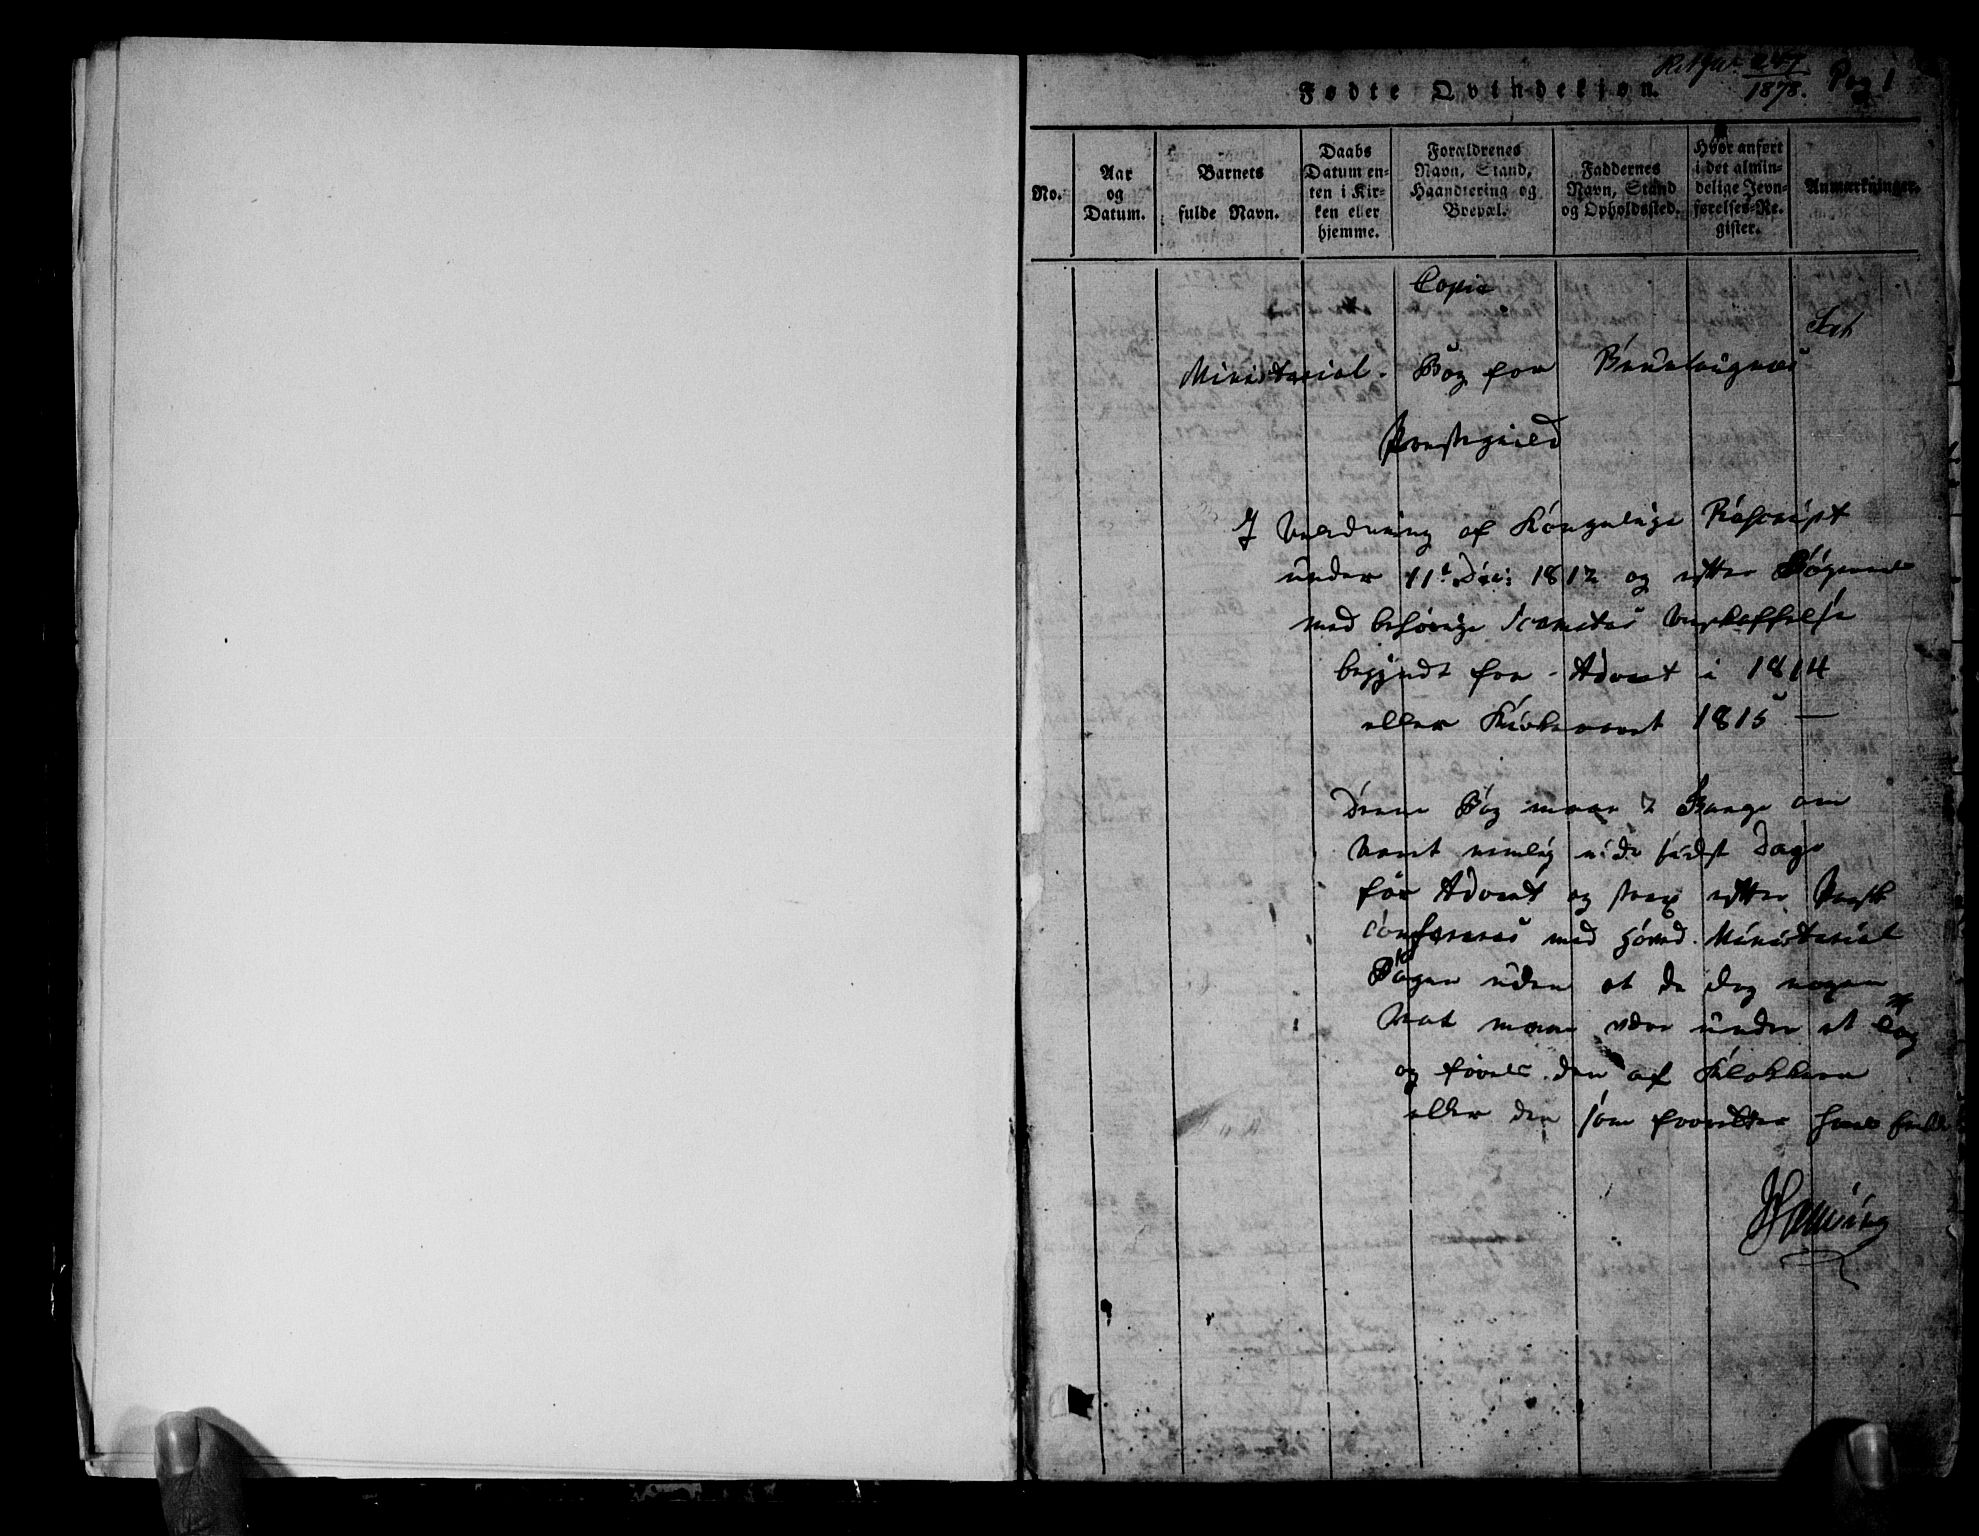 1878. Pag 1
Fødte Qvindekjøn.
No.
Aar
og
Datum.
Barnets
fulde Navn.
Daabs
Datum en-
ten i Kir-
ken eller
hjemme.
Forældrenes
Navn, Stand,
Haandtering og
Boepæl.
Faddernes
Navn, Stand
og Opholdssted.
Hvor anført
i det almin-
delige Jevn-
førelses-Re-
gister.
Anmærkninger.
Copie
Ministerial-Bog for
Præstegield
I Anledning af Kongelige Rescript
under 11t Dec: 1812 og efter Bøgernes
med behørige Anskaffelse
begyndt fra Advent i 1814
eller Kirkeaaret 1815 —
Denne Bog maae 2 Gange om
Aaret nemlig sidst Dage
før Advent og strax efter Paaske
confereres med Hoved Ministerial
Bogen uden at de dog nogen
Nat maae være under et Tag
og føres den af Klokkeren
eller den som forretter hans